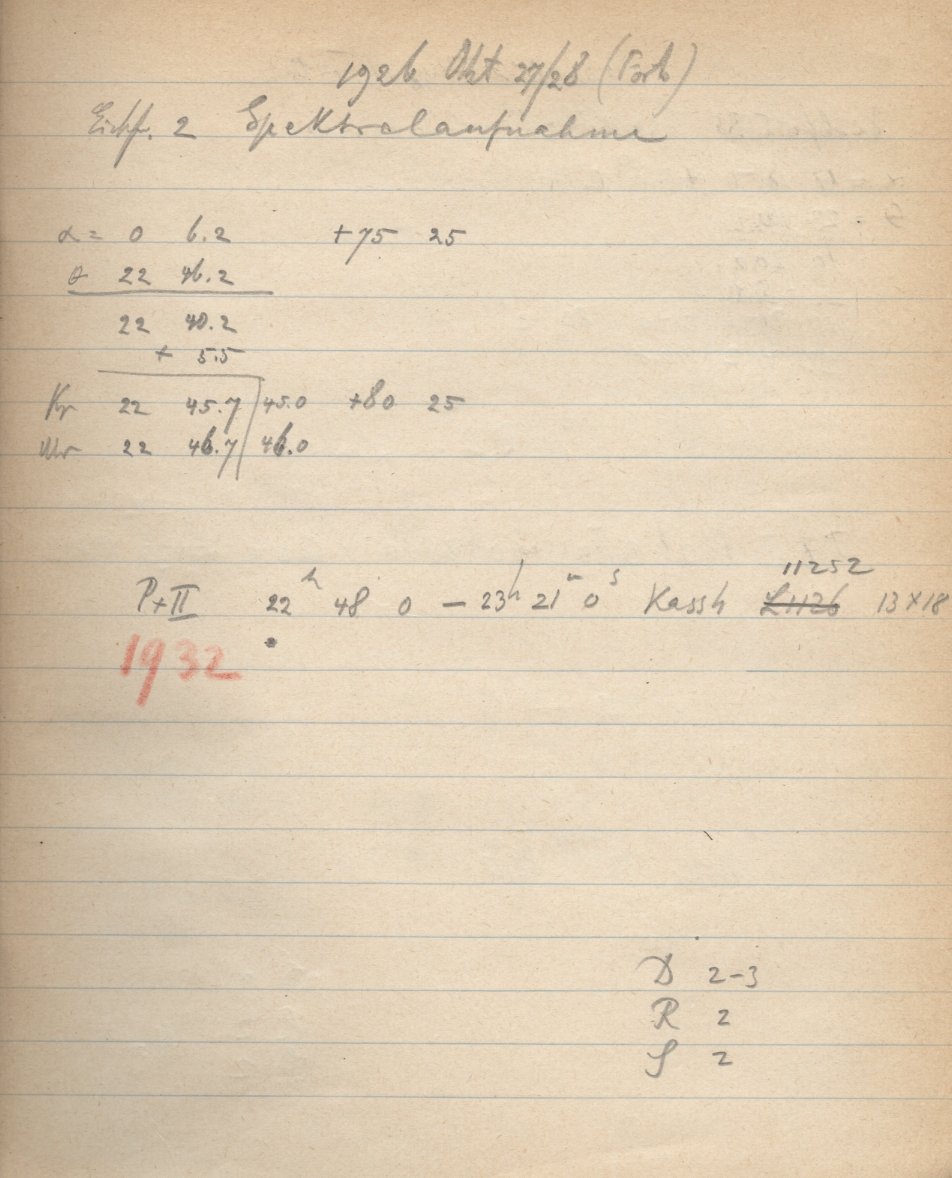 1926 Okt 27/28 (Forts)
Eichf. 2 Spektralaufnahme
α = 0 6.2 +75 25
θ 22 46.2
22 40.2
+ 5.5
22 45.7 45.0 +80 25
Uhr 22 46.7 46.0
11252
P+II 22h 48 0 – 23h 21m 0s Kassh L1126 13×18
1932
D 2–3
R 2
S 2